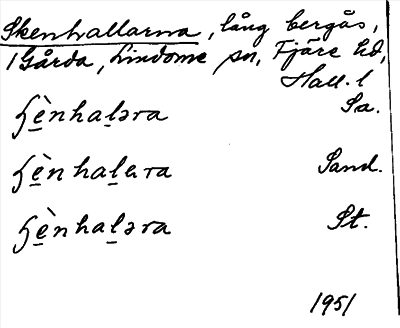 Skenhallarna, lång bergås,
1 Gårda, Lindome sn, Fjäre hd,
Hall. l
ɧè̱nhaḻəra Sa.
ɧè̱nhaḻɐra Sand.
ɧè̱nhaḻəra St.
1951